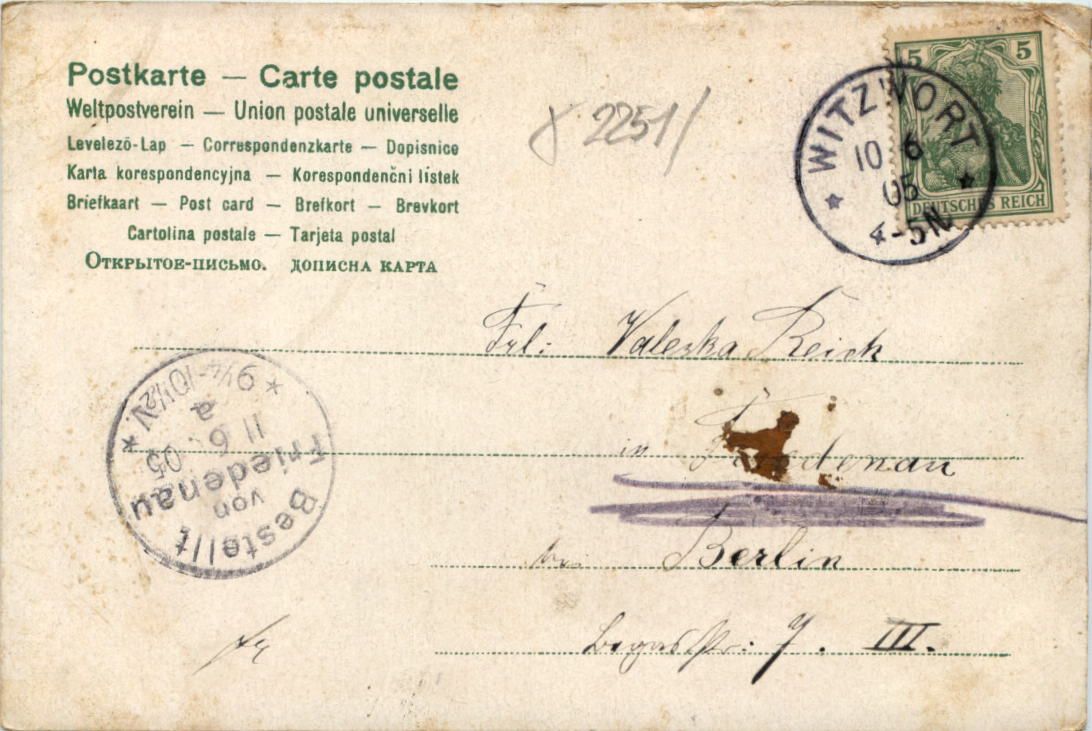 Postkarte — Carte postale
Weltpostverein — Union postale universelle
Levelező-Lap — Correspondenzkarte — Dopisnice
Karta korespondencyjna — Korespondenčni listek
Briefkaart — Post card — Brefkort — Brevkort
Cartolina postale — Tarjeta postal
Открытое-письмо. дописна карта
2251/
5 5
DEUTSCHES REICH
* WITZWORT *
10 6
05
4-5N
Frl: Valeska Reich
in Friedenau
bei Berlin
Begasstr: 7. III.
* 9¼-10½N *
a
11 6
05
Friedenau
von
Bestellt